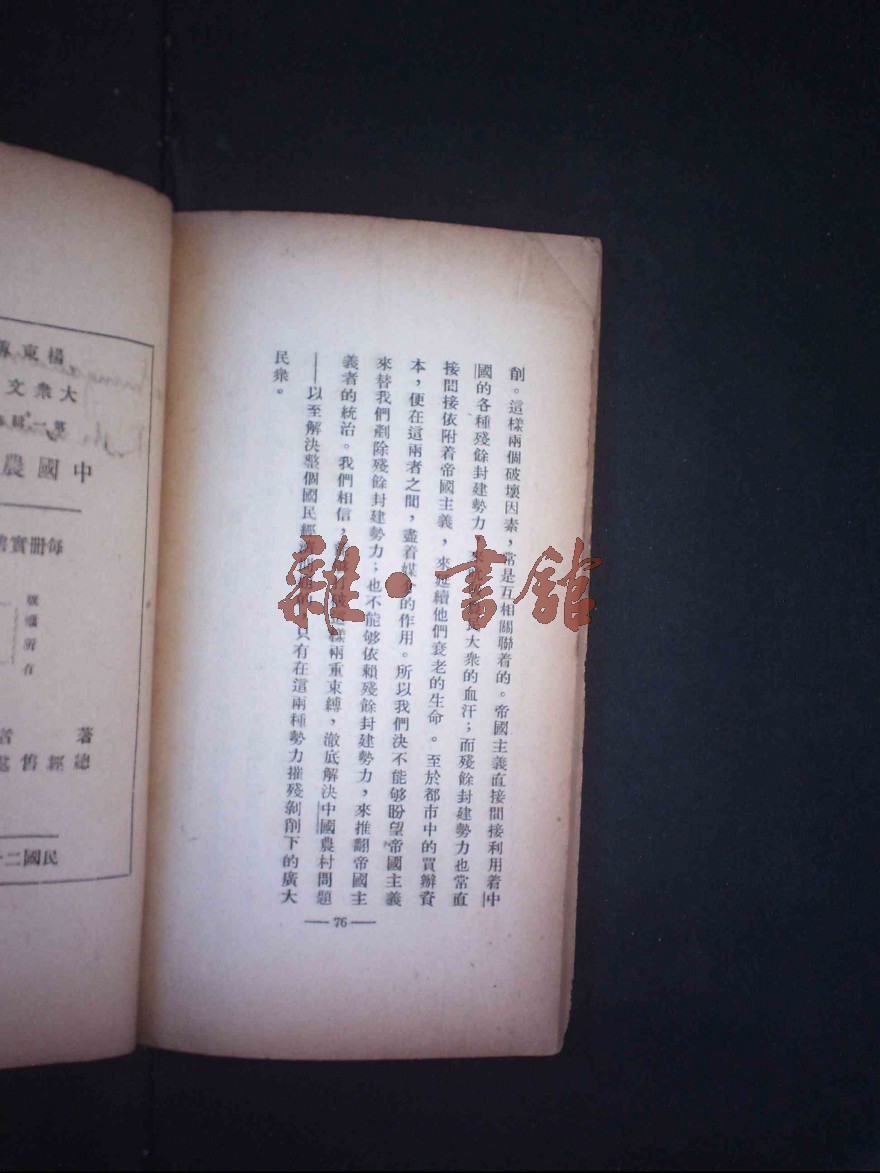 削。這樣兩個破壞因素，常是互相關聯着的。帝國主義直接間接利用着中
國的各種殘餘封建勢力，大衆的血汗；而殘餘封建勢力也常直
接間接依附着帝國主義，來延續他們衰老的生命。至於都市中的買辦資
本，便在這兩者之間，盡着媒介的作用。所以我們決不能够盼望帝國主義
來替我們剷除殘餘封建勢力；也不能够依賴殘餘封建勢力，來推翻帝國主
義者的統治。我們相信，打破這樣兩重束縛，澈底解決中國農村問題
——以至解決整個國民經濟只有在這兩種勢力摧殘剝削下的廣大
民衆。
—76—
楊東
大衆文
第一
中國農
每冊實
版權所有
著者
總經售處
民國二十
雜·書館